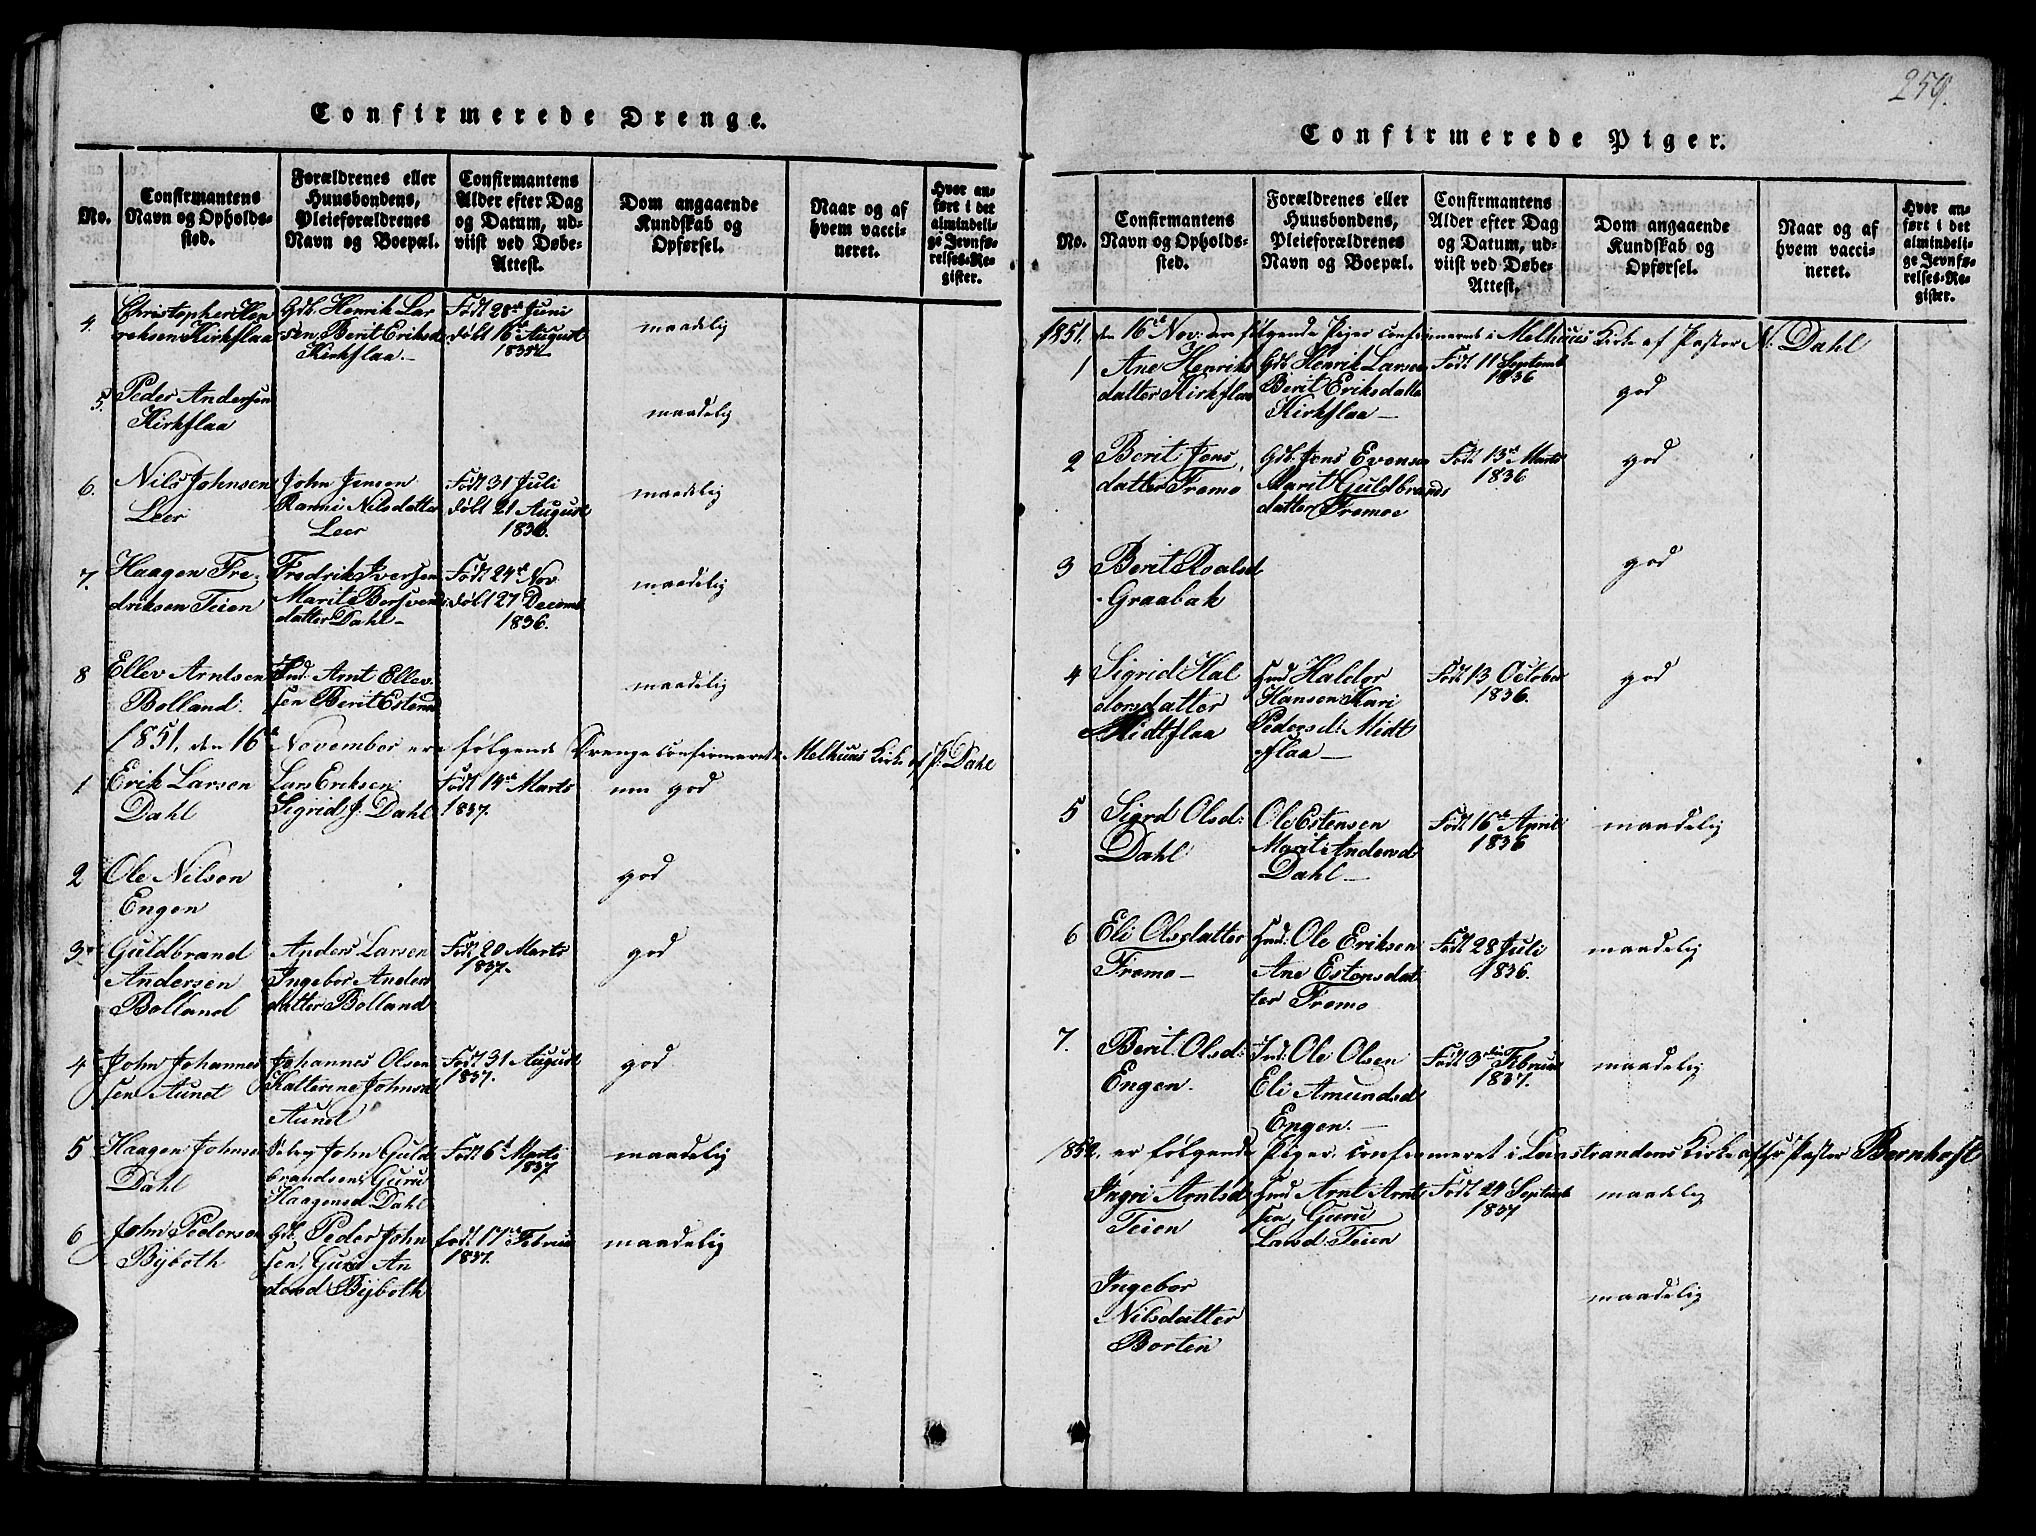 Confirmerede Drenge.
No.
Confirmantens
Navn og Opholds-
sted.
Forældrenes eller
Huusbondens,
Pleieforældrenes
Navn og Boepæl.
Confirmantens
Alder efter Dag
og Datum, ud-
viist ved Døbe-
Attest.
Dom angaaende
Kundskab og
Opførsel.
Naar og af
hvem vacci-
neret.
Hvor an-
ført i det
almindeli-
ge Jevnfø-
relses-Re-
gister.
4.
Christopher Hen
reksen Kirkflaa
Gdb. Henrik Lar
sen, Berit Eriksd
Kirkflaa —
Født 28de Juni
døbt 16de August
maadelig
5.
Peder Andersen
Kirkflaa
maadelig
6.
Nils Johnsen
Leer
John Jensen
Ranni Nilsdatter
Leer
Født 31 Juli
døbt 21 August
1836.
maadelig
7.
Haagen Fre-
driksen Teien
Fredrik Iversen
Marit Bersvend
datter Dahl —
Født 24de Nov
døbt 27 Decemb
1836.
maadelig
8
Ellev Arntsen
Bolland.
Ind: Arnt Ellev
sen Berit Estensd
maadelig
1851, den 16de November ere følgende Drenge confirmeret i Melhuus Kirke af P: Dahl
1
Erik Larsen
Dahl
Lars Eriksen
Sigrid J. Dahl
Født 14de Marts
1837.
god
2
Ole Nilsen
Engen
god
3
Guldbrand
Andersen
Bolland
Anders Larsen
Ingebor Anders
datter Bolland
Født 20 Marts
1837.
god
4
John Johannes
sen Aunet
Johannes Olsen
Katterine Johnsd
Aunet
Født 31 August
1837.
god
5
Haagen Johnsen
Dahl
John Guld
brandsen, Guru
Haagensd Dahl
Født 6te Marts
1837
maadelig
6
John Pedersen
Bÿboth
Gdb. Peder John
sen, Guru An
dersd Bÿboth
født 17de Februa
1837.
maadelig
259.
Confirmerede Piger.
No.
Confirmantens
Navn og Opholds-
sted.
Forældrenes eller
Huusbondens,
Pleieforældrenes
Navn og Boepæl.
Confirmantens
Alder efter Dag
og Datum, ud-
viist ved Døbe-
Attest.
Dom angaaende
Kundskab og
Opførsel.
Naar og af
hvem vacci-
neret.
Hvor an-
ført i det
almindeli-
ge Jevnfø-
relses-Re-
gister.
1851, den 16de Nov: ere følgende Piger confirmeret i Melhuus Kirke af Pastor N: Dahl
1
Ane Henriks
datter Kirkflaa
Gdb. Henrik Larsen
Berit Eriksdatter
Kirkflaa —
Født 11 Septemb
1836
god
2
Berit Jens
datter Fremo
Gdb. Jens Evensen
Marit Guldbrands
datter Fremoe
Født 13de Marts
1836
god
3
Berit Roalsd
Graabak
god
4
Sigrid Hal
dorsdatter
Midtflaa
Hmd Haldor
Hansen Kari
Pedersd: Midt
flaa —
Født 13 October
1836.
god
5
Sigrd Olsd:
Dahl
Ole Estensen
Marit Andersd
Dahl —
Født 16de April
1836
maadelig
6
Eli Olsdatter
Fremo —
Hmd: Ole Eriksen
Ane Estensdat
ter Fremo
Født 28 Juli
1836.
maadelig
7.
Berit Olsd:
Engen.
Ind: Ole Olsen
Eli Amundsd
Engen. —
Født 3die Februar
1837.
maadelig
1852, er følgende Piger confirmeret i Leinstrandens Kirke af Hr Pastor Bernhoft
Ingri Arntsd
Teien
Hmd Arnt Arnt
sen, Guru
Larsd: Teien
Født 24 Septemb
1837
maadelig
Ingebor
Nilsdatter
Borten
maadelig